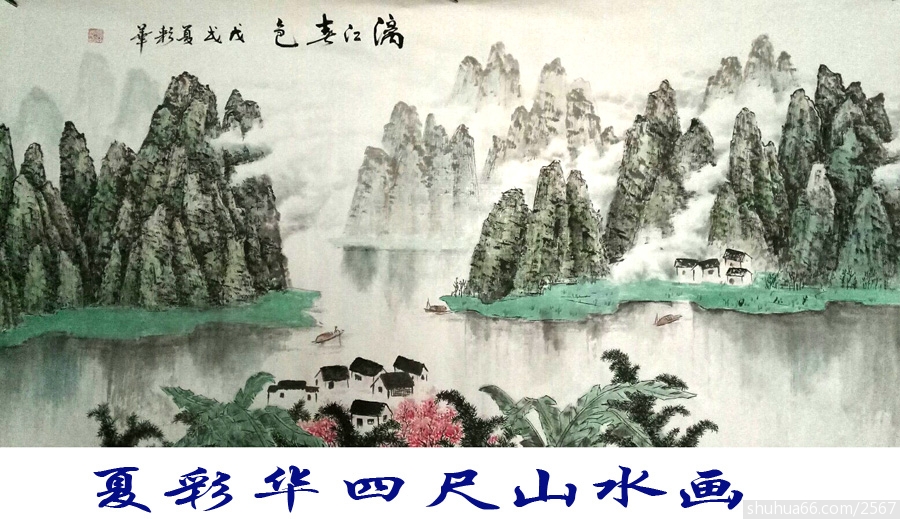 漓江春色 戊戌夏彩華
夏彩华四尺山水画
shuhua66.com/2567